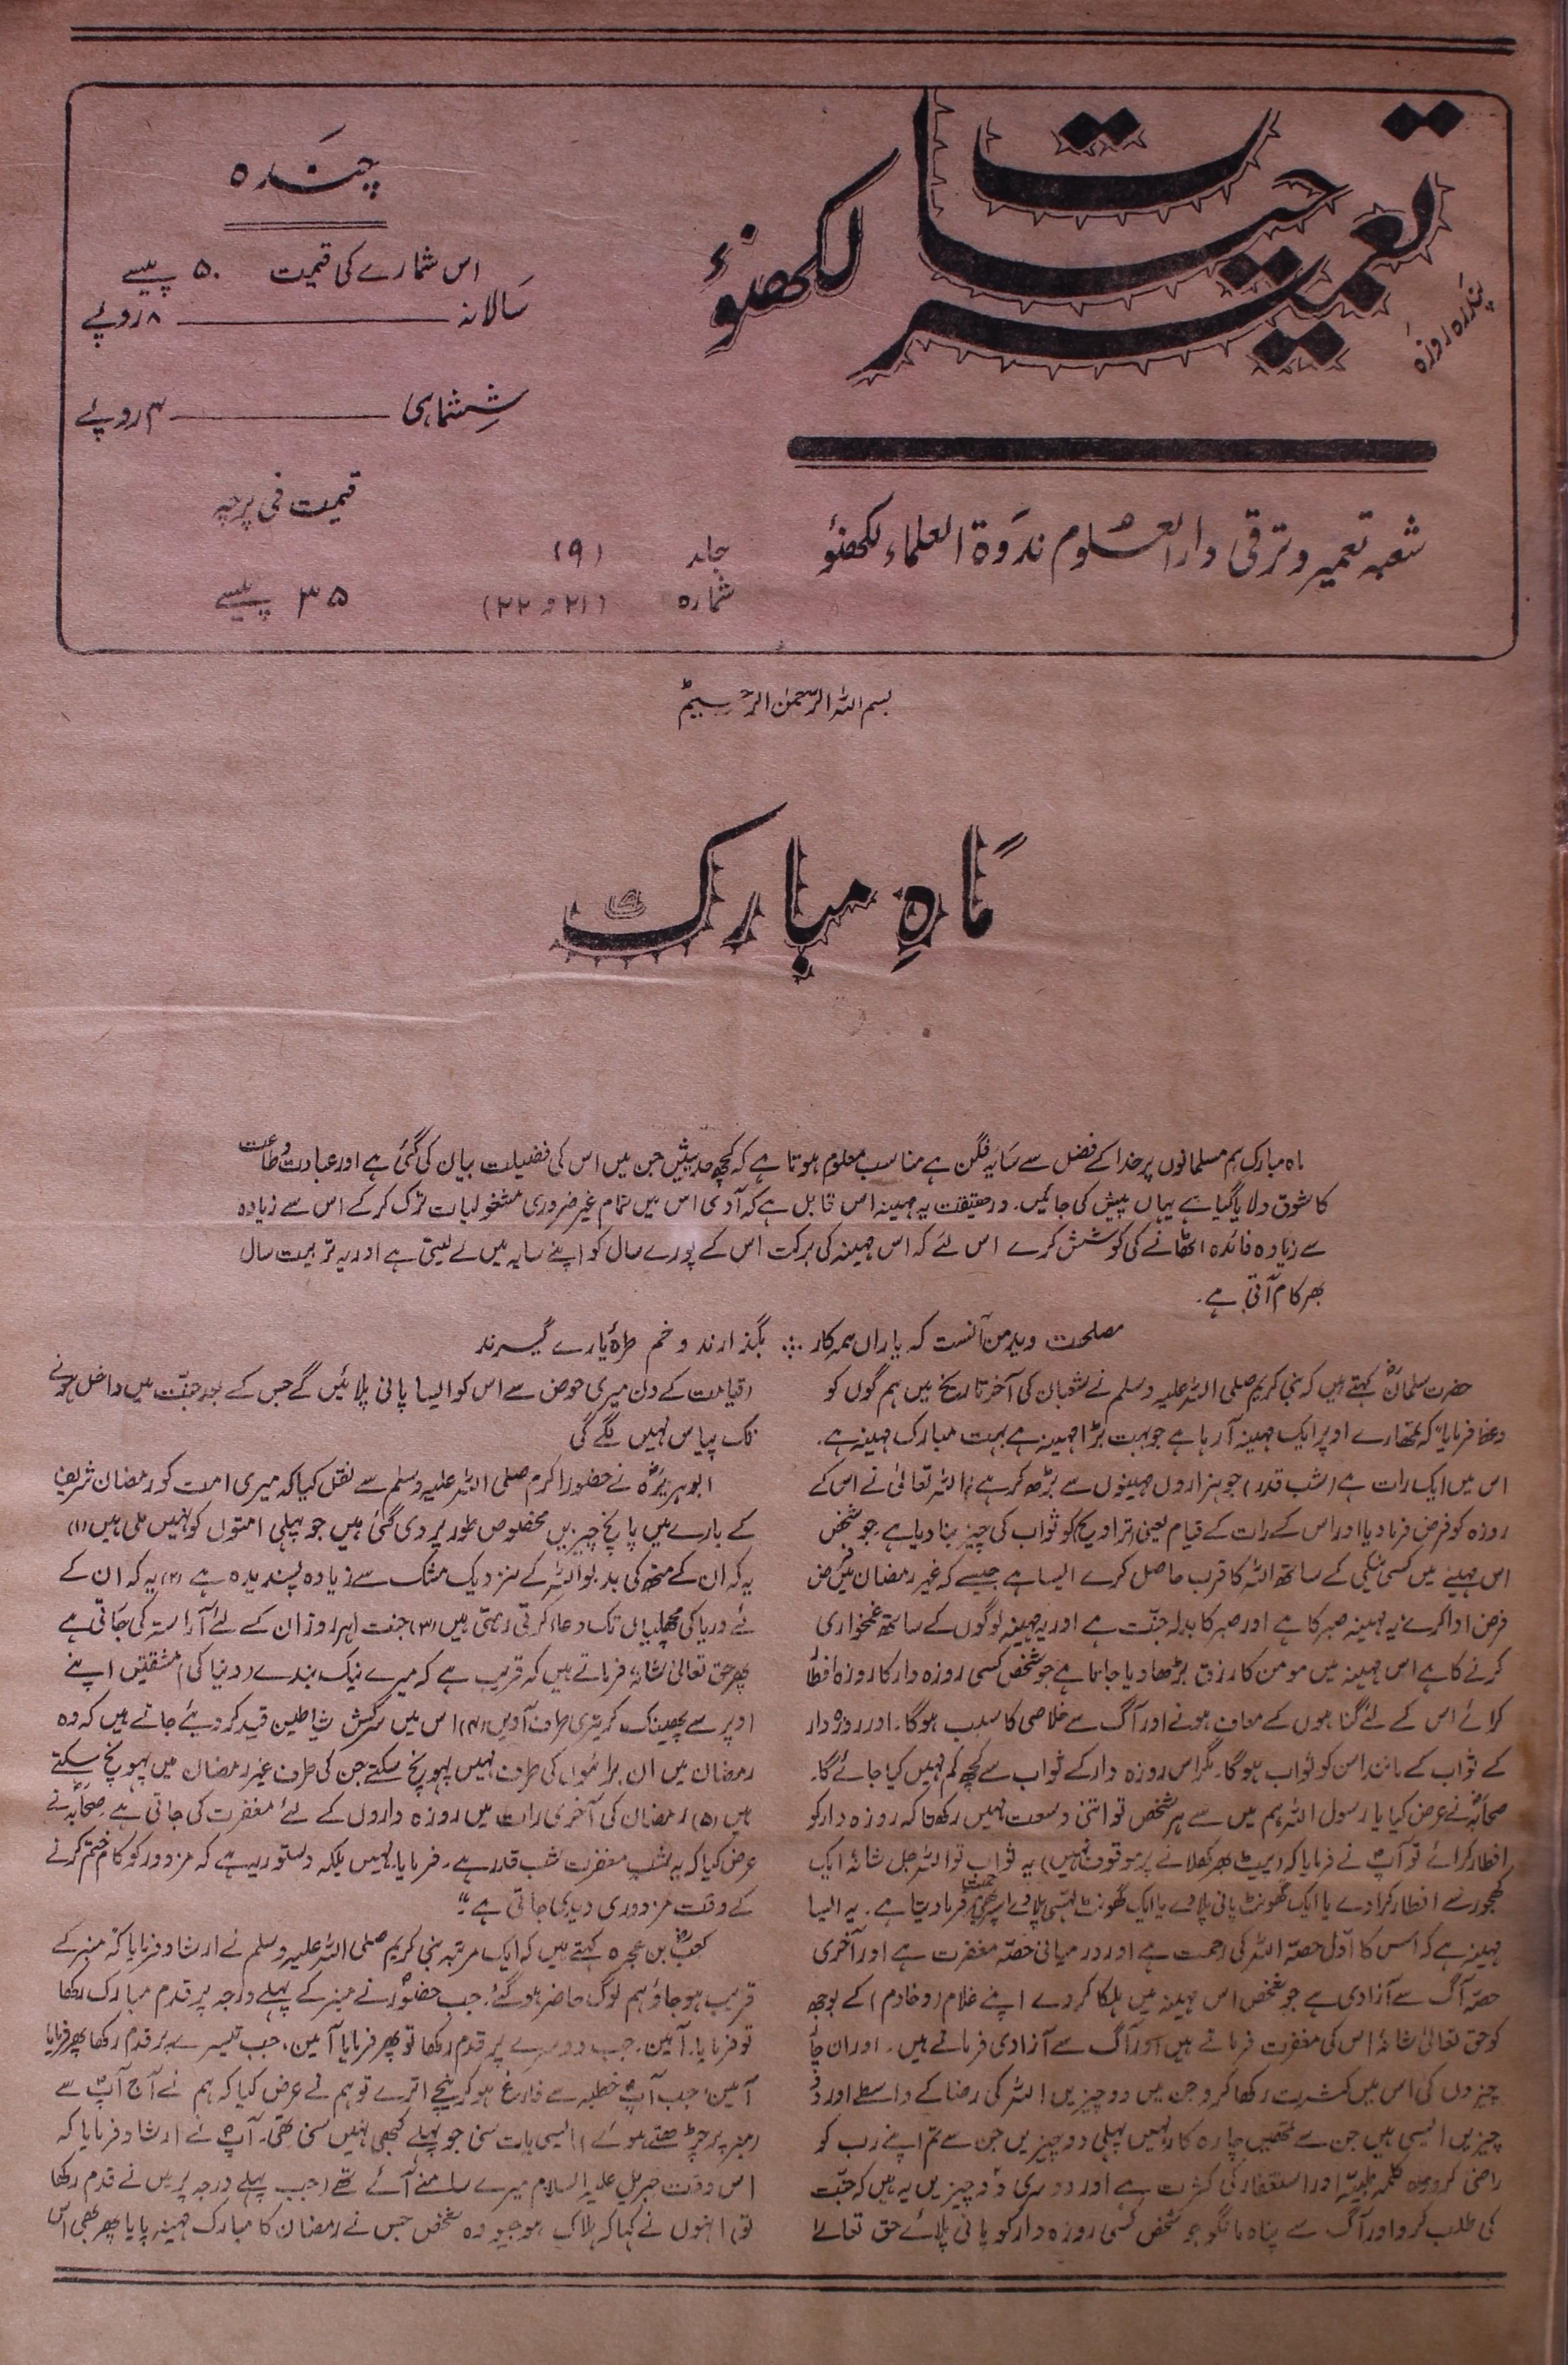 پندرہ روزہ
تعمیر حیات لکھنؤ
شعبہ تعمیر و ترقی دارالعلوم ندوۃ العلماء لکھنؤ
جلد (۹)
شمارہ (۲۱ و ۲۲)
چندہ
اس شمارے کی قیمت ۵۰ پیسے
سالانہ ۸ روپئے
ششماہی ۴ روپئے
قیمت فی پرچہ
۳۵ پیسے
بسم اللہ الرحمٰن الرحیم
ماہِ مبارک
ماہ مبارک ہم مسلمانوں پر خدا کے فضل سے سایہ فگن ہے مناسب معلوم ہوتا ہے کہ کچھ حدیثیں جن میں اس کی فضیلت بیان کی گئی ہے اور عبادت وطاعت
کا شوق دلایا گیا ہے یہاں پیش کی جائیں۔ درحقیقت یہ مہینہ اس قابل ہے کہ آدمی اس میں تمام غیر ضروری مشغولیات ترک کر کے اس سے زیادہ
سے زیادہ فائدہ اٹھانے کی کوشش کرے اس لئے کہ اس مہینہ کی برکت اس کے پورے سال کو اپنے سایہ میں لے لیتی ہے اور یہ تربیت سال
بھر کام آتی ہے۔
مصلحت دید من آنست کہ یاراں ہمہ کار ∴ بگذارند و خم طرۂ یارے گیرند
حضرت سلمانؓ کہتے ہیں کہ نبی کریم صلی اللہ علیہ وسلم نے شعبان کی آخر تاریخ میں ہم گوں کو
وعظ فرمایا "کہ تمھارے اوپر ایک مہینہ آرہا ہے جو بہت بڑا مہینہ ہے بہت مبارک مہینہ ہے۔
اس میں ایک رات ہے (شب قدر) جو ہزاروں مہینوں سے بڑھ کر ہے، اللہ تعالیٰ نے اس کے
روزہ کو فرض فرمادیا اور اس کے رات کے قیام یعنی (تراویح) کو ثواب کی چیز بنا دیا ہے۔ جو شخص
اس مہینے میں کسی نیکی کے ساتھ اللہ کا قرب حاصل کرے ایسا ہے جیسے کہ غیر رمضان میں فرض
فرض ادا کرے یہ مہینہ صبر کا ہے اور صبر کا بدلہ جنّت ہے اور یہ مہینہ لوگوں کے ساتھ غمخواری
کرنے کا ہے اس مہینہ میں مومن کا رزق بڑھا دیا جاتا ہے جو شخص کسی روزہ دار کا روزہ افطار
کرائے اس کے لئے گناہوں کے معاف ہونے اور آگ سے خلاصی کا سبب ہوگا۔ اور روزہ دار
کے ثواب کے مانند اس کو ثواب ہوگا۔ مگر اس روزہ دار کے ثواب سے کچھ کم نہیں کیا جائے گا۔
صحابہؓ نے عرض کیا یا رسول اللہ ہم میں سے ہر شخص تو اتنی وسعت نہیں رکھتا کہ روزہ دار کو
افطار کرائے تو آپؐ نے فرمایا کہ (پیٹ بھر کھلانے پر موقوف نہیں) یہ ثواب تو اللہ جل شانہٗ ایک
کھجور سے افطار کرادے یا ایک گھونٹ پانی پلادے یا ایک گھونٹ لسّی پلادے اس پر بھی مرحمت فرمادیتا ہے۔ یہ ایسا
مہینہ ہے کہ اس کا اوّل حصّہ اللہ کی رحمت ہے اور درمیانی حصّہ مغفرت ہے اور آخری
حصّہ آگ سے آزادی ہے جو شخص اس مہینہ میں ہلکا کر دے اپنے غلام (وخادم) کے بوجھ
کو حق تعالیٰ شانہٗ اس کی مغفرت فرماتے ہیں اور آگ سے آزادی فرماتے ہیں۔ اور ان چار
چیزوں کی اس میں کثرت رکھا کرو جن میں دو چیزیں اللہ کی رضا کے واسطے اور دو
چیزیں ایسی ہیں جن سے تمھیں چارہ کار نہیں پہلی دو چیزیں جن سے تم اپنے رب کو
راضی کرو وہ کلمہ طیبّہ اور استغفار کی کثرت ہے اور دوسری دو چیزیں یہ ہیں کہ جنّت
کی طلب کرو اور آگ سے پناہ مانگو جو شخص کسی روزہ دار کو پانی پلائے حق تعالےٰ
(قیامت کے دن میری حوض سے اس کو ایسا پانی پلائیں گے جس کے بعد جنّت میں داخل ہونے
تک پیاس نہیں لگے گی
ابوہریرہؓ نے حضور اکرم صلی اللہ علیہ وسلم سے نقل کیا کہ میری امت کو رمضان شریف
کے بارے میں پانچ چیزیں مخصوص طور پر دی گئی ہیں جو پہلی امتوں کو نہیں ملی ہیں (۱)
یہ کہ ان کے منھ کی بدبو اللہ کے نزدیک مشک سے زیادہ پسندیدہ ہے (۲) یہ کہ ان کے
لئے دریا کی مچھلیاں تک دعاء کرتی رہتی ہیں (۳) جنت ہر روز ان کے لئے آراستہ کی جاتی ہے
پھر حق تعالیٰ شانہٗ فرماتے ہیں کہ قریب ہے کہ میرے نیک بندے (دنیا کی) مشقتیں اپنے
اوپر سے پھینک کر تیری طرف آویں (۴) اس میں سرکش شیاطین قید کر دیئے جاتے ہیں کہ وہ
رمضان میں ان برائیوں کی طرف نہیں پہونچ سکتے جن کی طرف غیر رمضان میں پہونچ سکتے
ہیں (۵) رمضان کی آخری رات میں روزہ داروں کے لئے مغفرت کی جاتی ہے۔ صحابہؓ نے
عرض کیا کہ یہ شب مغفرت شب قدر ہے۔ فرمایا، نہیں بلکہ دستور یہ ہے کہ مزدور کو کام ختم کرنے
کے وقت مزدوری دیدی جاتی ہے"
کعبؓ بن عجرہ کہتے ہیں کہ ایک مرتبہ نبی کریم صلی اللہ علیہ وسلم نے ارشاد فرمایا کہ منبر کے
قریب ہو جاؤ ہم لوگ حاضر ہوگئے، جب حضورؐ نے منبر کے پہلے درجہ پر قدم مبارک رکھا
تو فرمایا۔ آمین۔ جب دوسرے پر قدم رکھا تو پھر فرمایا آمین، جب تیسرے پر قدم رکھا پھر فرمایا
آمین، جب آپؐ خطبہ سے فارغ ہو کر نیچے اترے تو ہم نے عرض کیا کہ ہم نے آج آپؐ سے
(منبر پر چڑھتے ہوئے) ایسی بات سنی جو پہلے کبھی نہیں سنی تھی۔ آپؐ نے ارشاد فرمایا کہ
اس وقت جبریل علیہ السلام میرے سامنے آئے تھے (جب پہلے درجہ پر میں نے قدم رکھا
تو) انہوں نے کہا کہ ہلاک ہوجیو وہ شخص جس نے رمضان کا مبارک مہینہ پایا پھر بھی اس